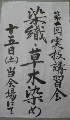 第一回実技講習会
染織・草木染め
十五日(土)当会場にて